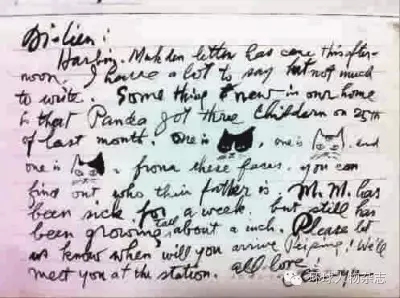 Di-lien:
Harbin-Mukden letter has come this after-
noon. I have a lot to say but not much
to write. Some thing new in our home
is that Panda got three Childern on 25th
of last month. One is , one is , and
one is . from these faces, you can
find out who their father is. M.M. has
been sick for a week. but still has
been growing tall about a inch. Please let
us know when will you arrive Peiping! We'll
meet you at the station. all love!
环球人物杂志